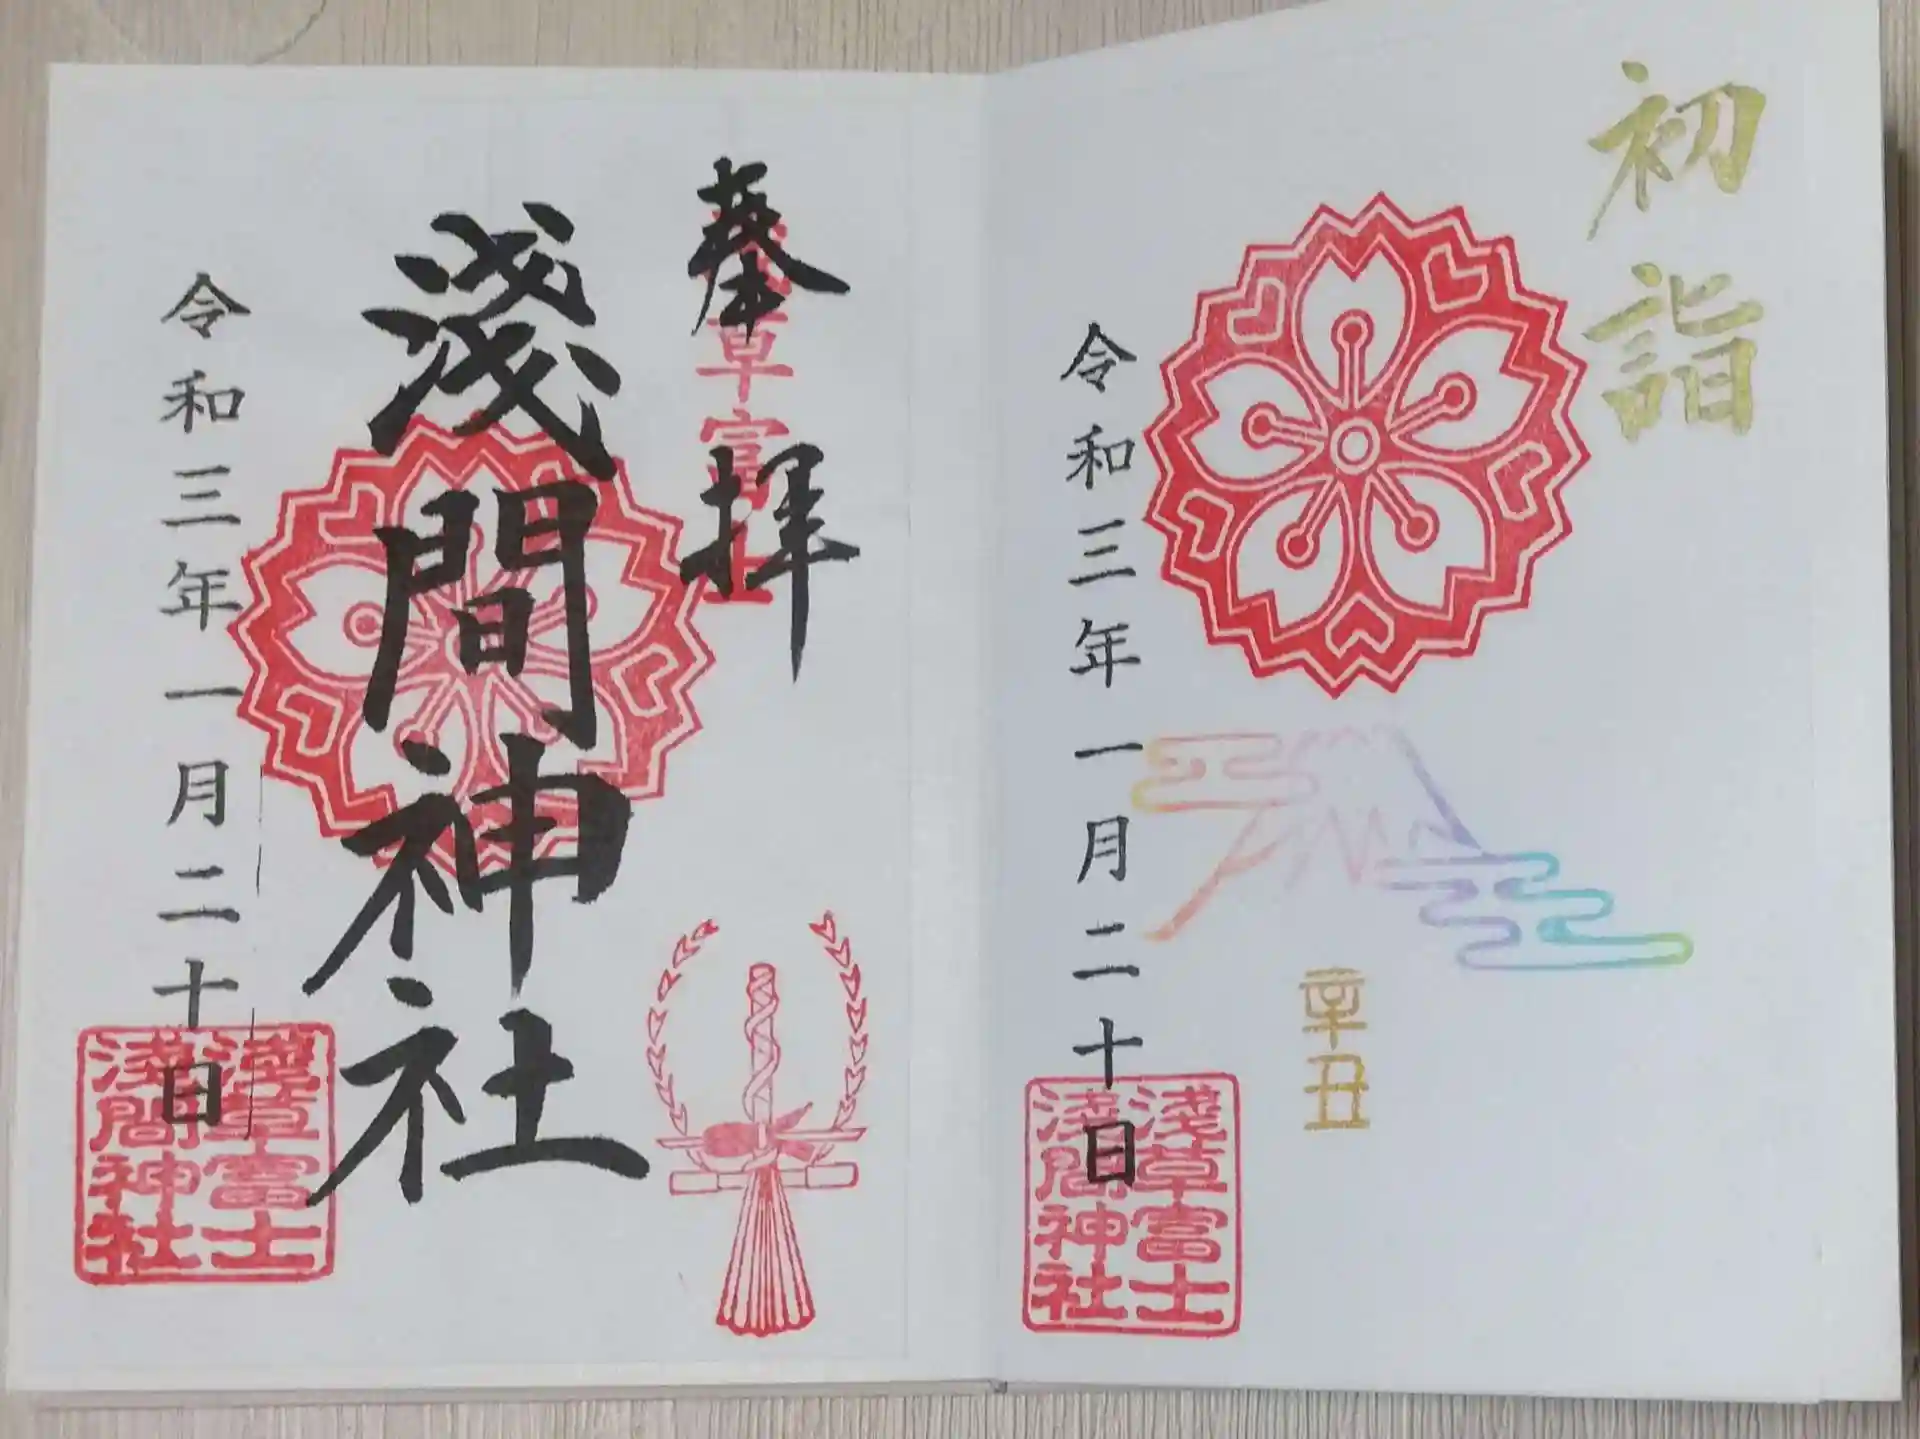 初詣
辛丑
令和三年一月二十日
淺草富士
淺間神社
奉拝
草富
淺間神社
令和三年一月二十日
淺草富士
淺間神社